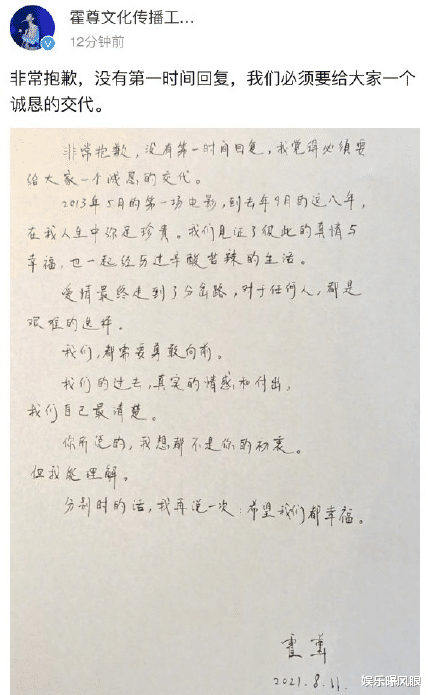 霍尊文化传播工...
12分钟前
非常抱歉,没有第一时间回复,我们必须要给大家一个
诚恳的交代。
非常抱歉,没有第一时间回复,我觉得必须要
给大家一个诚恳的交代。
2013年5月的第一场电影,到去年9月的这八年,
在我人生中弥足珍贵。我们见证了彼此的真情与
幸福,也一起经历过辛酸苦辣的生活。
爱情最终走到了分岔路,对于任何人,都是
艰难的选择。
我们,都需要勇敢向前。
我们的过去,真实的情感和付出,
我们自己最清楚。
你所说的,我想那不是你的初衷。
但我能理解。
分别时的话,我再说一次:希望我们都幸福。
霍尊
2021.8.11.
娱乐曝风眼